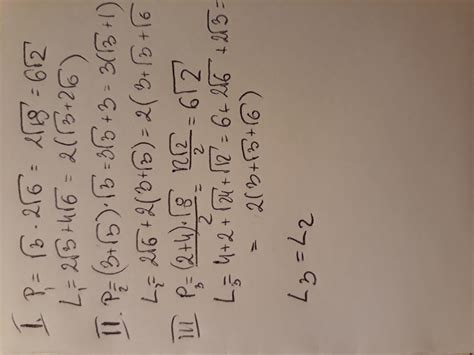 I. P₁ = √3 · 2√6 = 2√18 = 6√2
L₁ = 2√3 + 4√6 = 2(√3 + 2√6)
II. P₂ = (3+√3)·√3 = 3√3 + 3 = 3(√3 + 1)
L₂ = 2√6 + 2(3+√3) = 2(3+√3+√6
III P₃ = (2+4)·√8/2 = 12√2/2 = 6√2
L₃ = 4+2+√24+√12 = 6+2√6+2√3 =
= 2(3+√3+√6)
L₃ = L₂